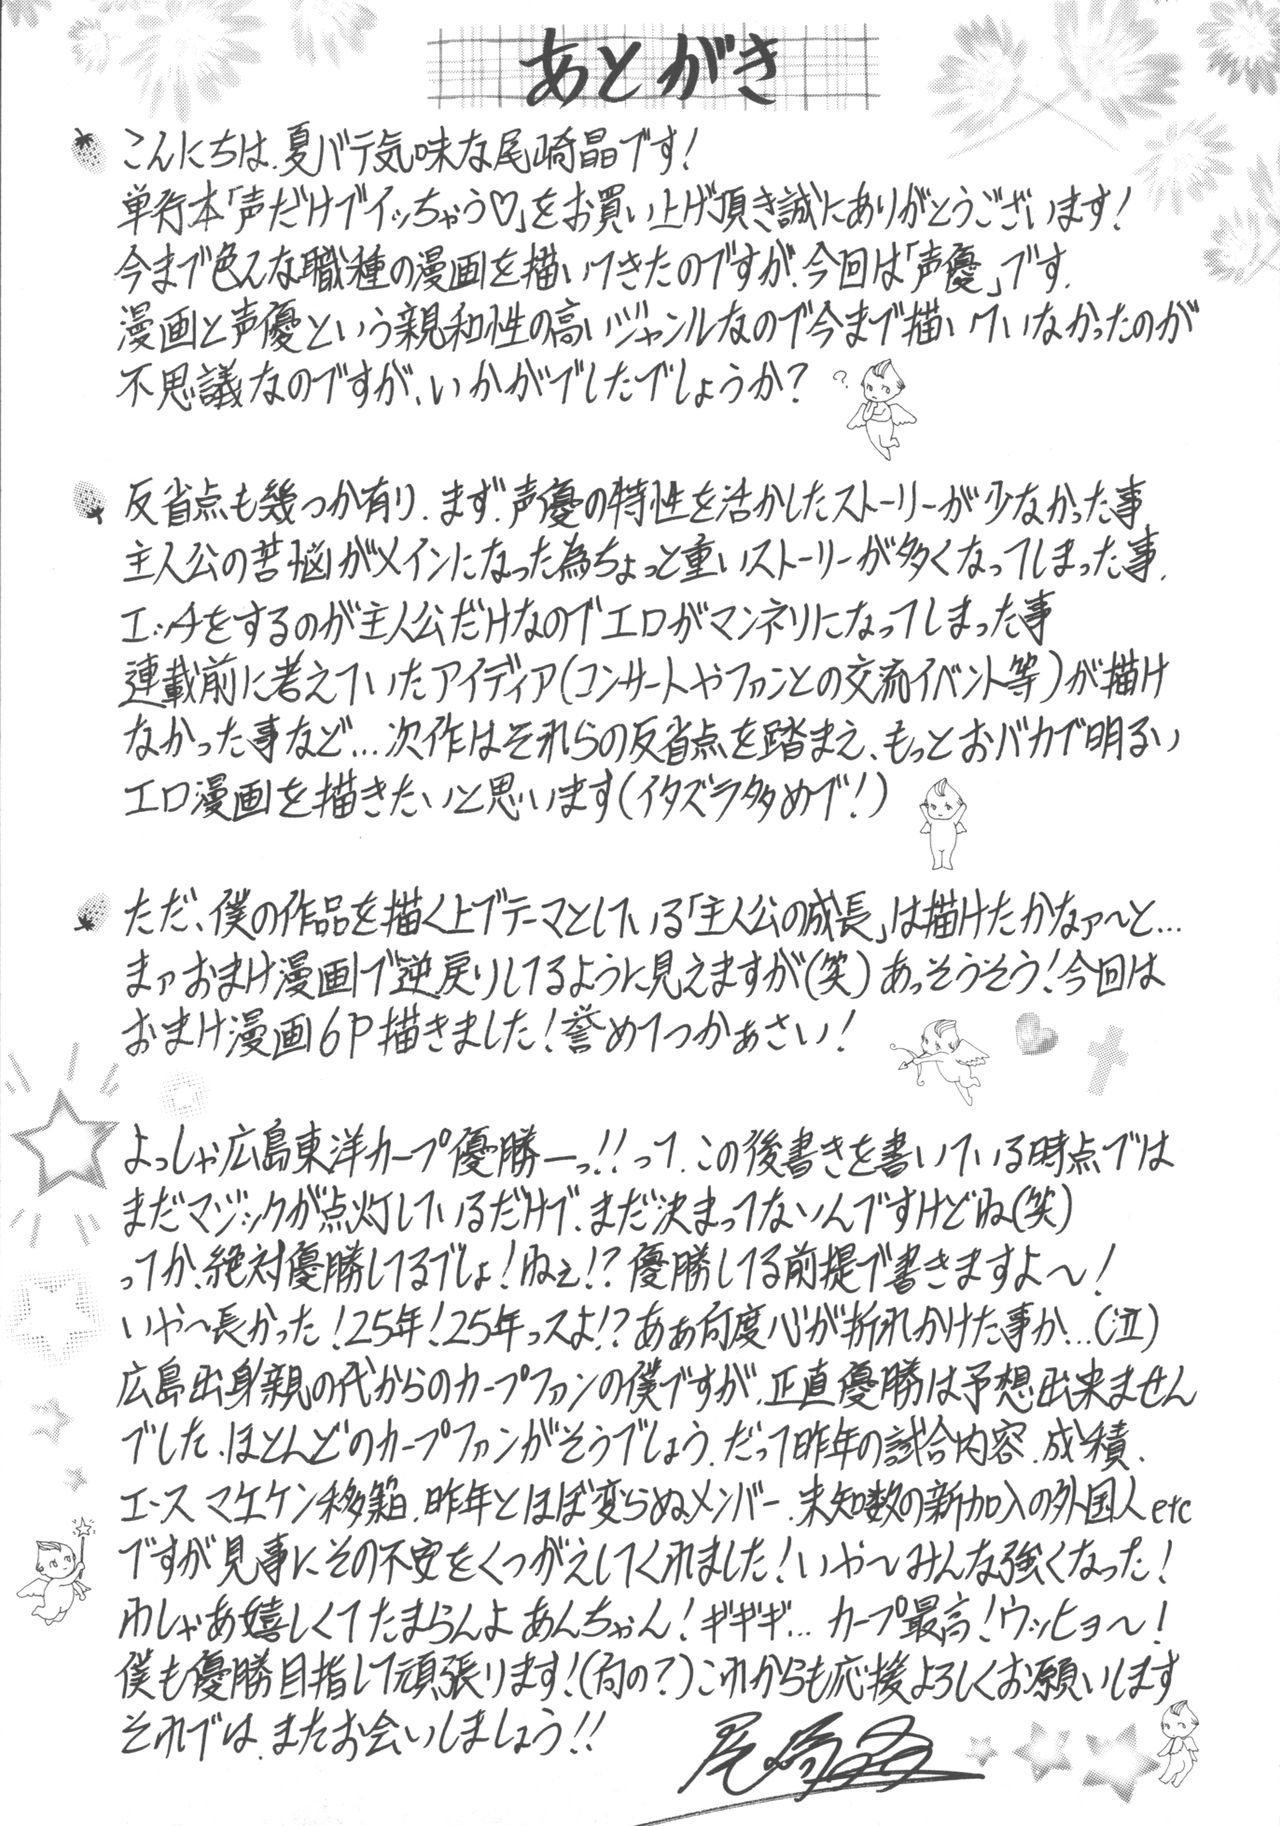 あとがき
こんにちは、夏バテ気味な尾崎晶です!
単行本「声だけでイッちゃう♡」をお買い上げ頂き誠にありがとうございます!
今まで色んな職種の漫画を描いてきたのですが、今回は「声優」です。
漫画と声優という親和性の高いジャンルなので今まで描いていなかったのが
不思議なのですが、いかがでしたでしょうか?
?
反省点も幾つか有り、まず、声優の特性を活かしたストーリーが少なかった事
主人公の苦悩がメインになった為ちょっと重いストーリーが多くなってしまった事、
エッチをするのが主人公だけなのでエロがマンネリになってしまった事
連載前に考えていたアイディア(コンサートやファンとの交流イベント等)が描け
なかった事など…次作はそれらの反省点を踏まえ、もっとおバカで明るい
エロ漫画を描きたいと思います(イタズラ多めで!)
ただ、僕の作品を描く上でテーマとしている「主人公の成長」は描けたかなァ〜と…
まァおまけ漫画で逆戻りしてるように見えますが(笑)あっそうそう!今回は
おまけ漫画6P描きました!誉めてつかぁさい!
よっしゃ広島東洋カープ優勝ーっ!!って、この後書きを書いている時点では
まだマジックが点灯しているだけで、まだ決まってないんですけどね(笑)
ってか、絶対優勝してるでしょ!ねぇ!?優勝してる前提で書きますよ〜!
いや〜長かった!25年!25年っスよ!?あぁ何度心が折れかけた事か…(泣)
広島出身親の代からのカープファンの僕ですが、正直優勝は予想出来ません
でした、ほとんどのカープファンがそうでしょう、だって昨年の試合内容、成績、
エース マエケン移籍、昨年とほぼ変らぬメンバー、未知数の新加入の外国人etc
ですが見事にその不安をくつがえしてくれました!いや〜みんな強くなった!
わしゃあ嬉しくてたまらんよあんちゃん!ギギギ…カープ最高!ウッヒョ〜!
僕も優勝目指して頑張ります!(何の?)これからも応援よろしくお願いします
それでは、またお会いしましょう!!
尾崎晶